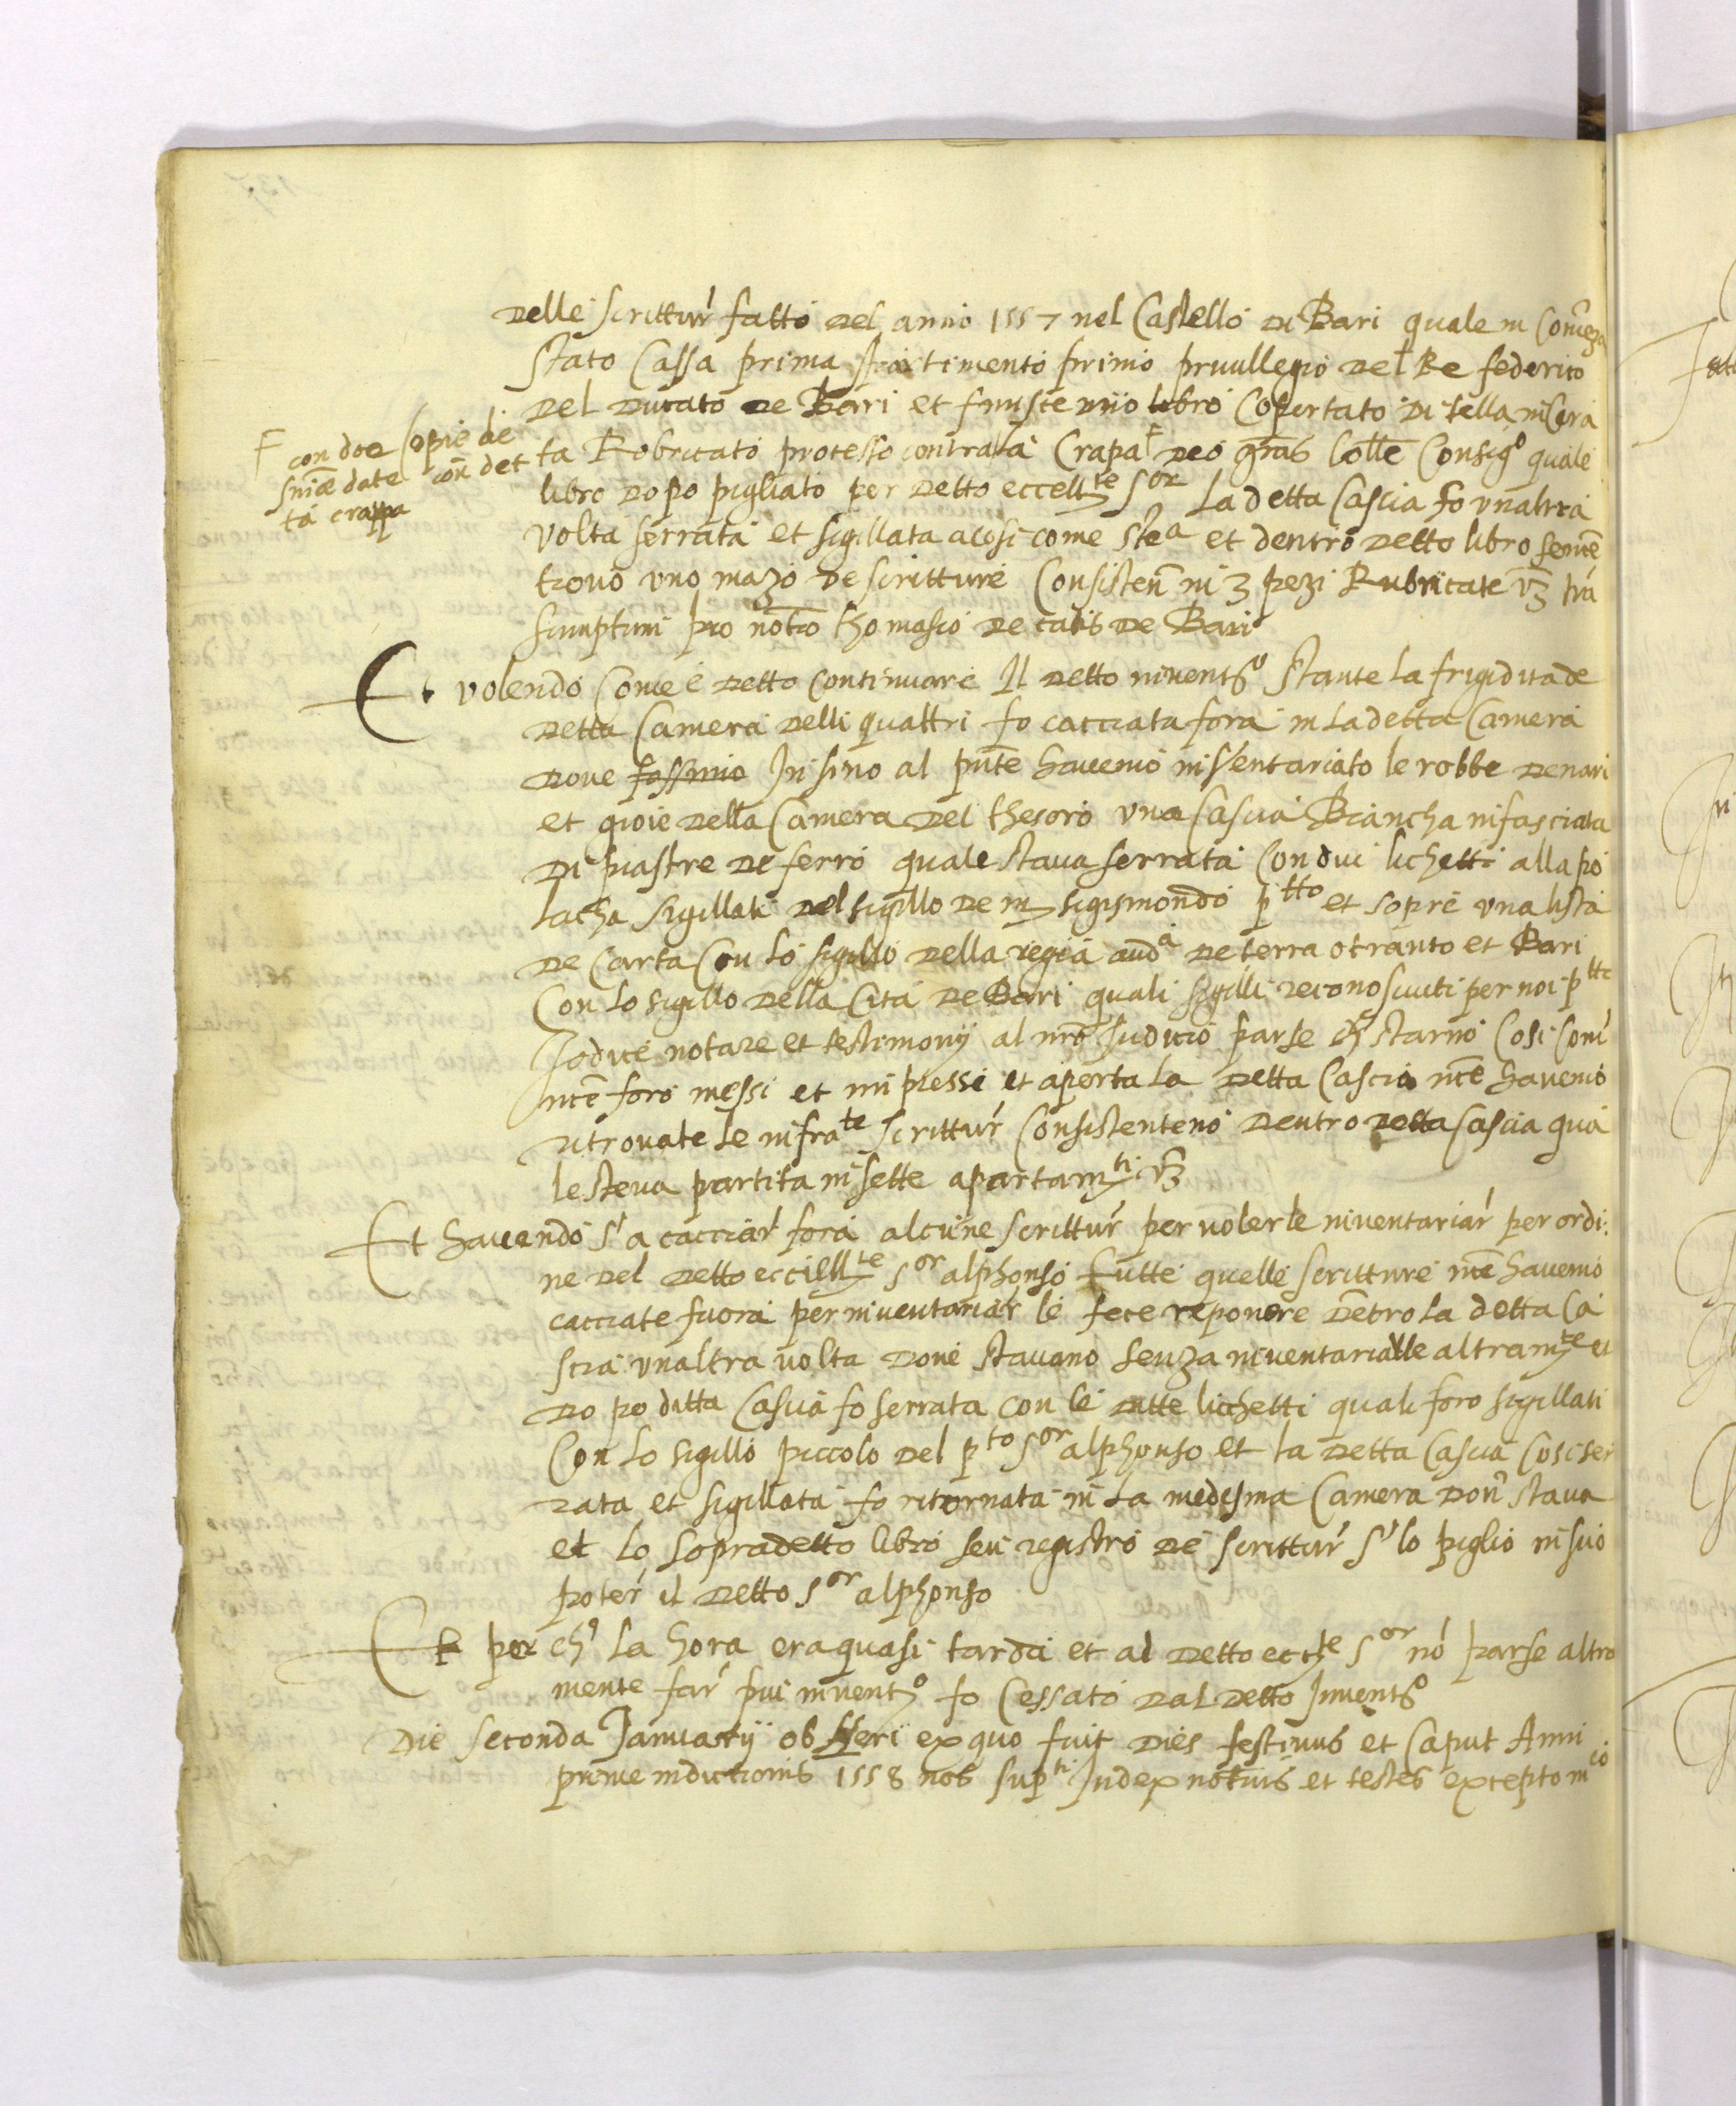 delle scrittur' fatto del anno 1557 nel Castello di Bari quale in
stato Cassa prima primo del Re federico
del ducato de Bari et finisce uno libro Copertato di tella incera
ta Robricato processo contra la Crapa Consig.o quale
F con doe Copie de
date con det
ta crappa
libro dopo pigliato per detto eccell.te S.or La detta Cascia fo unaltra
volta serrata et sigillata acosi come stea et dentro detto libro
trovo uno mazo de scritture Consisten in 3 pezi Rubricate vz tra
sumptum pro not.o thomasio de de Bari
Et volendo Come è detto Continuare Il detto invent.o stante la frigidita de
detta Camera delli quattri fo cacciata fora in la detta Camera
dove Insino al pnte havemo inventariato le robbe denari
et gioie della Camera del thesoro una Cascia Biancha infasciata
di piastre de ferro quale stava serrata Con dui lichetti alla po
lacha Sigillati del sigillo de m sigismondo p.tto et sopre una lista
de Carta Con lo sigillo della regia aud.a de terra otranto et Bari
Con lo sigillo della Cita de Bari quali sigilli reconosciuti per noi p.tte
Iodice notare et testimonij al nro Iudicio parse ch' starno Cosi Com'
foro messi et impressi et aperta la detta Cascia havemo
ritrovate le infra.te scrittur' Consistenteno dentro detta Cascia qua
le steva partita in sette apartam.ti vz
Et havendo s'a cacciar' fora alcune scrittur' per volerle inventariar' per ordi
ne del detto eccell.te S.or alphonso tutte quelle scritture havemo
cacciate fuora per inventariar le fece reponere detro la detta Ca
scia unaltra volta dove stavano senza inventariarle altram.te et
dopo ditta Cascia fo serrata con le ditte lichetti quali foro sigillati
Con lo sigillo piccolo del p.to S.or alphonso et la detta Cascia Cosi ser
rata et sigillata fo ritornata in la medesma Camera don' stava
et lo sopradetto libro seu registro de scrittur' s' lo piglio in suo
poter' il detto S.or alphonso
Et per ch' la hora era quasi tarda et al detto ecc.te S.or no' parse altro
mente far' piu invent.o fo Cessato dal detto Invent.o
Die seconda Januarij ex quo fuit dies festivus et Caput Anni
prime indictionis 1558 nos sup.ti Iudex notarius et testes excepto